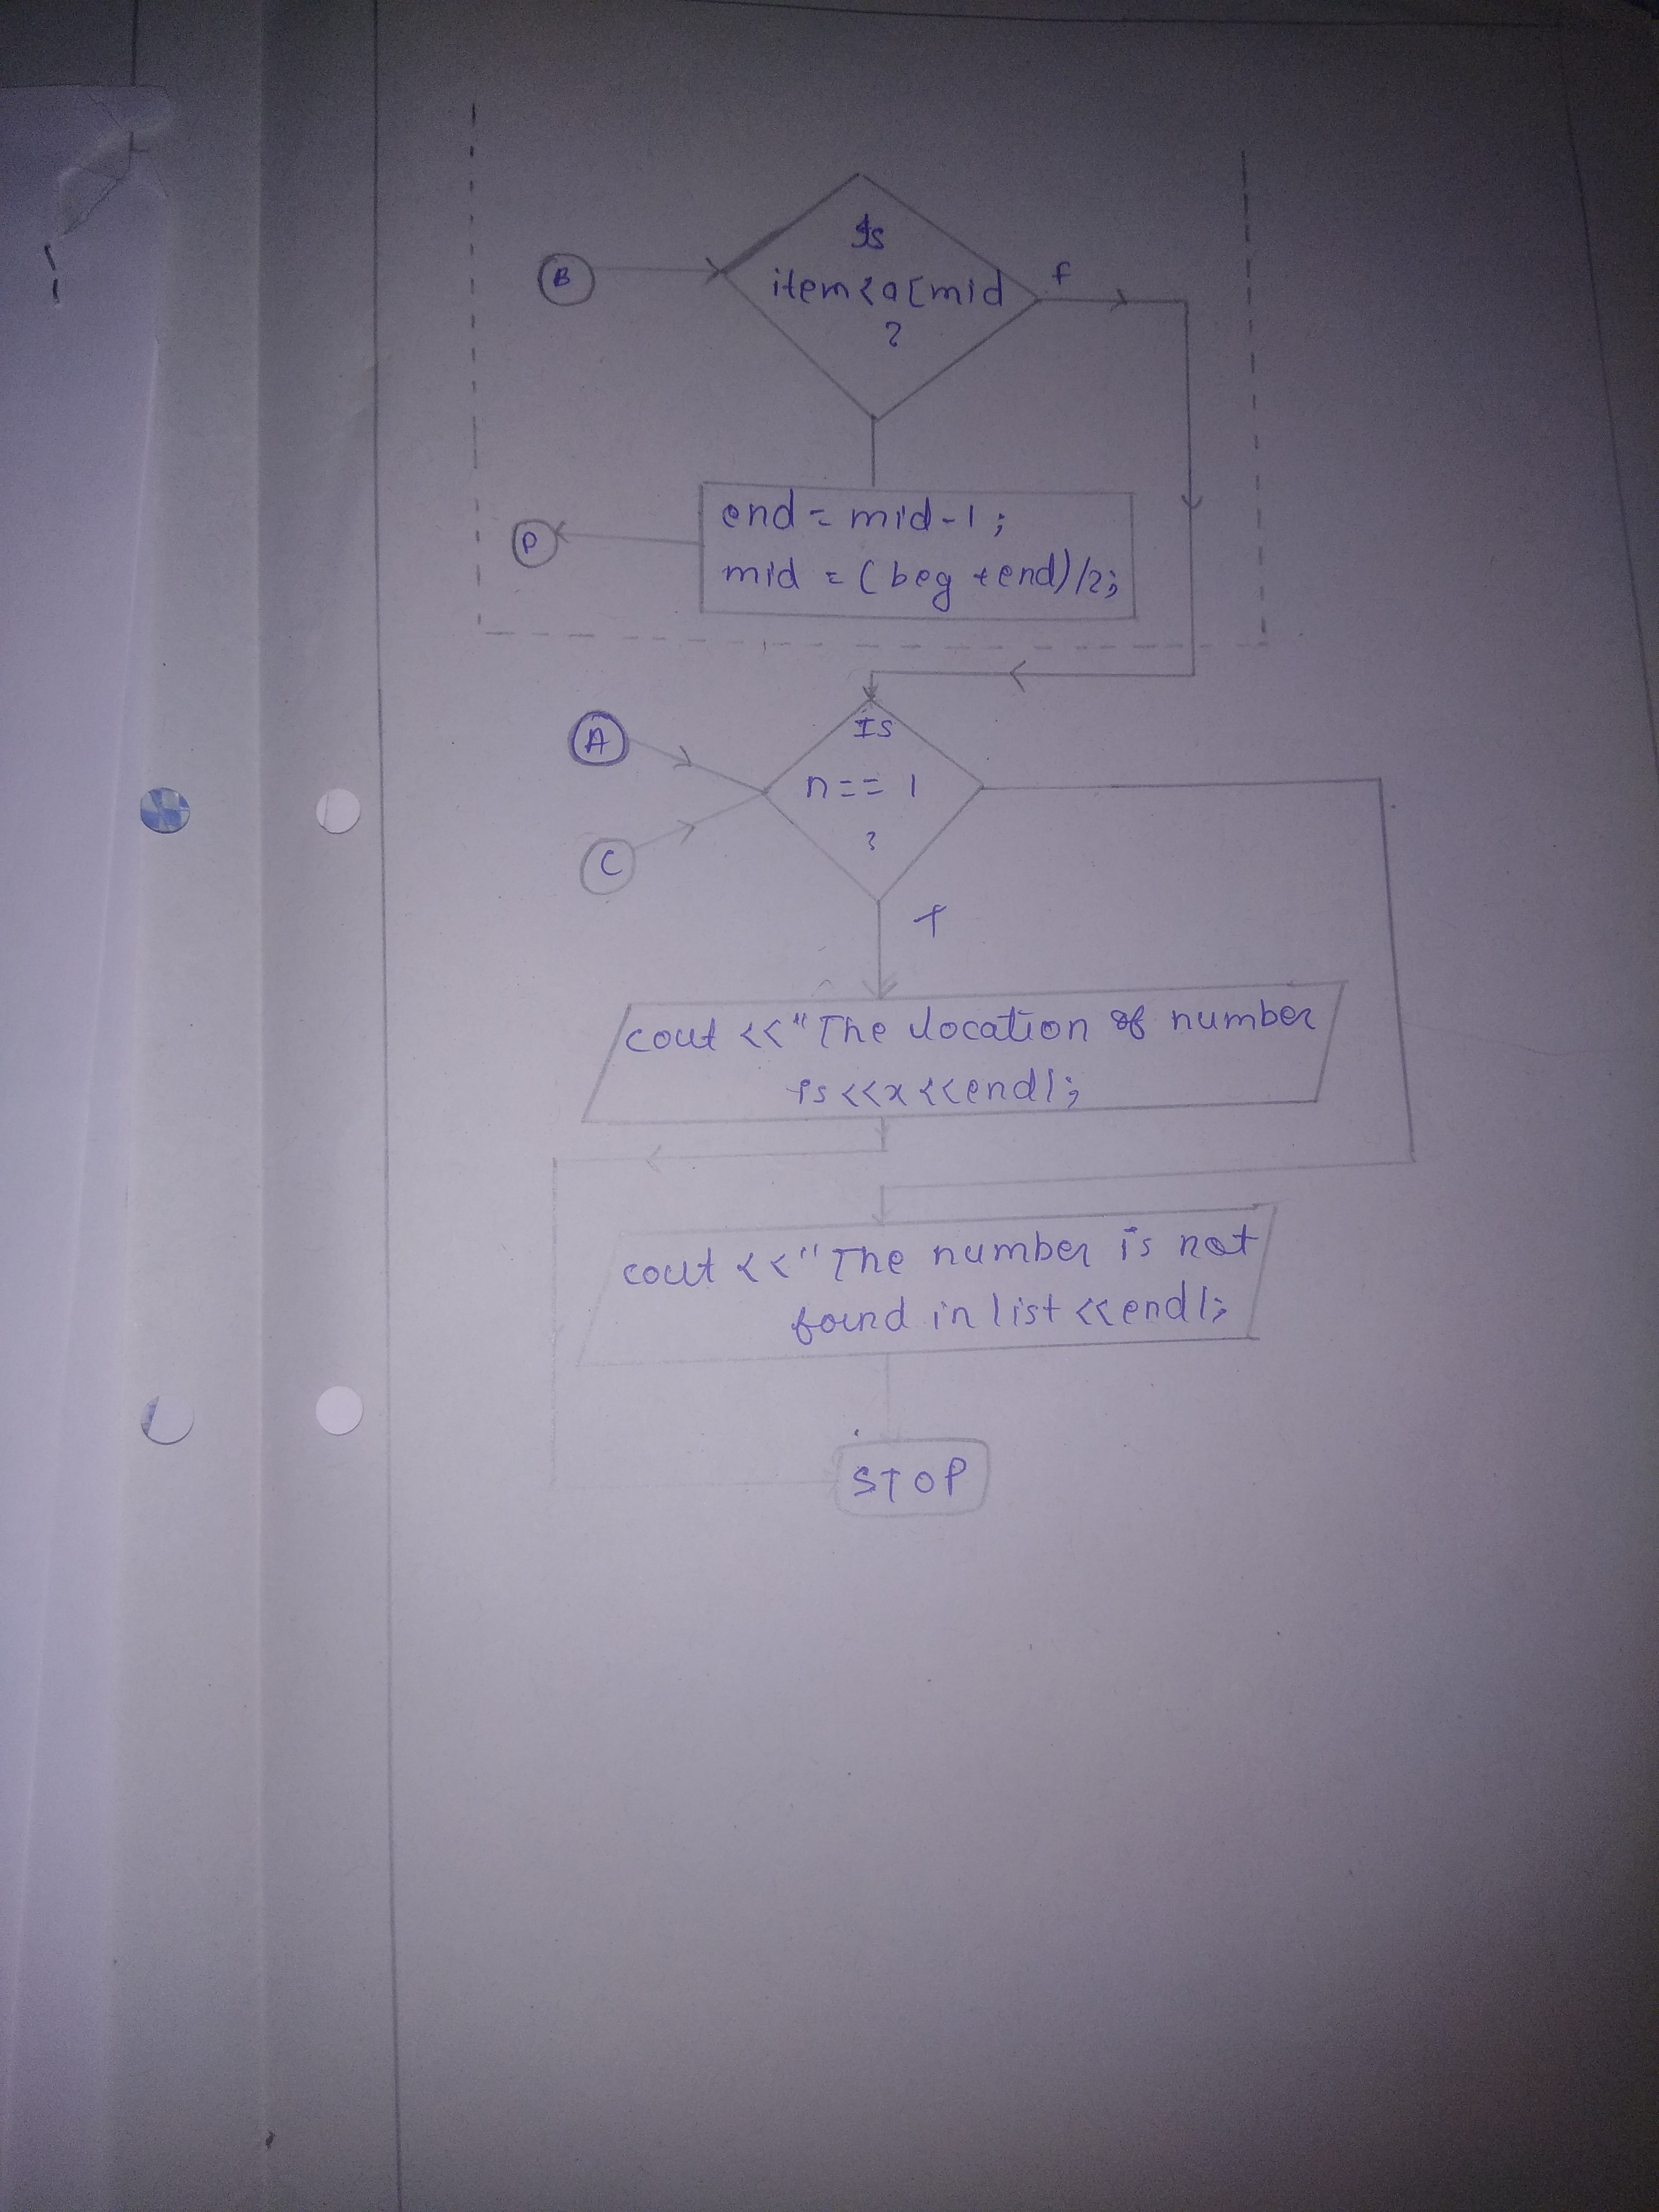 Is
B
item<a[mid
f
?
end = mid-1;
P
mid = (beg + end)/2;
Is
A
n== 1
?
C
T
cout <<"The location of number
is<<x<<endl;
cout <<"The number is not
found in list <<endl;
STOP